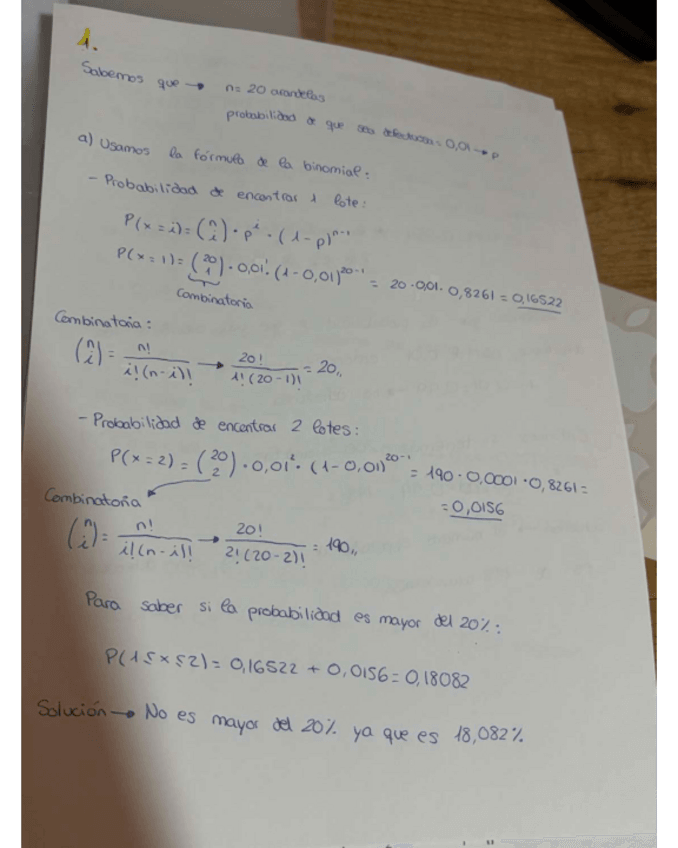 1.
Sabemos que → n= 20 arandelas
probabilidad de que sea defectuosa = 0,01 → p
a) Usamos la fórmula de la binomial:
- Probabilidad de encontrar 1 lote:
P(x = i) = (n i) · p^i · (1-p)^n-1
P(x = 1) = (20 1) · 0,01^1 · (1-0,01)^20-1 = 20 · 0,01 · 0,8261 = 0,16522
Combinatoria
Combinatoria:
(n i) = n! / i!(n-i)! → 20! / 1!(20-1)! = 20,,
- Probabilidad de encontrar 2 lotes:
P(x = 2) = (20 2) · 0,01^2 · (1-0,01)^20-1 = 190 · 0,0001 · 0,8261 =
= 0,0156
Combinatoria
(n i) = n! / i!(n-i)! → 20! / 2!(20-2)! = 190,,
Para saber si la probabilidad es mayor del 20%:
P(1≤x≤2) = 0,16522 + 0,0156 = 0,18082
Solución → No es mayor del 20% ya que es 18,082%